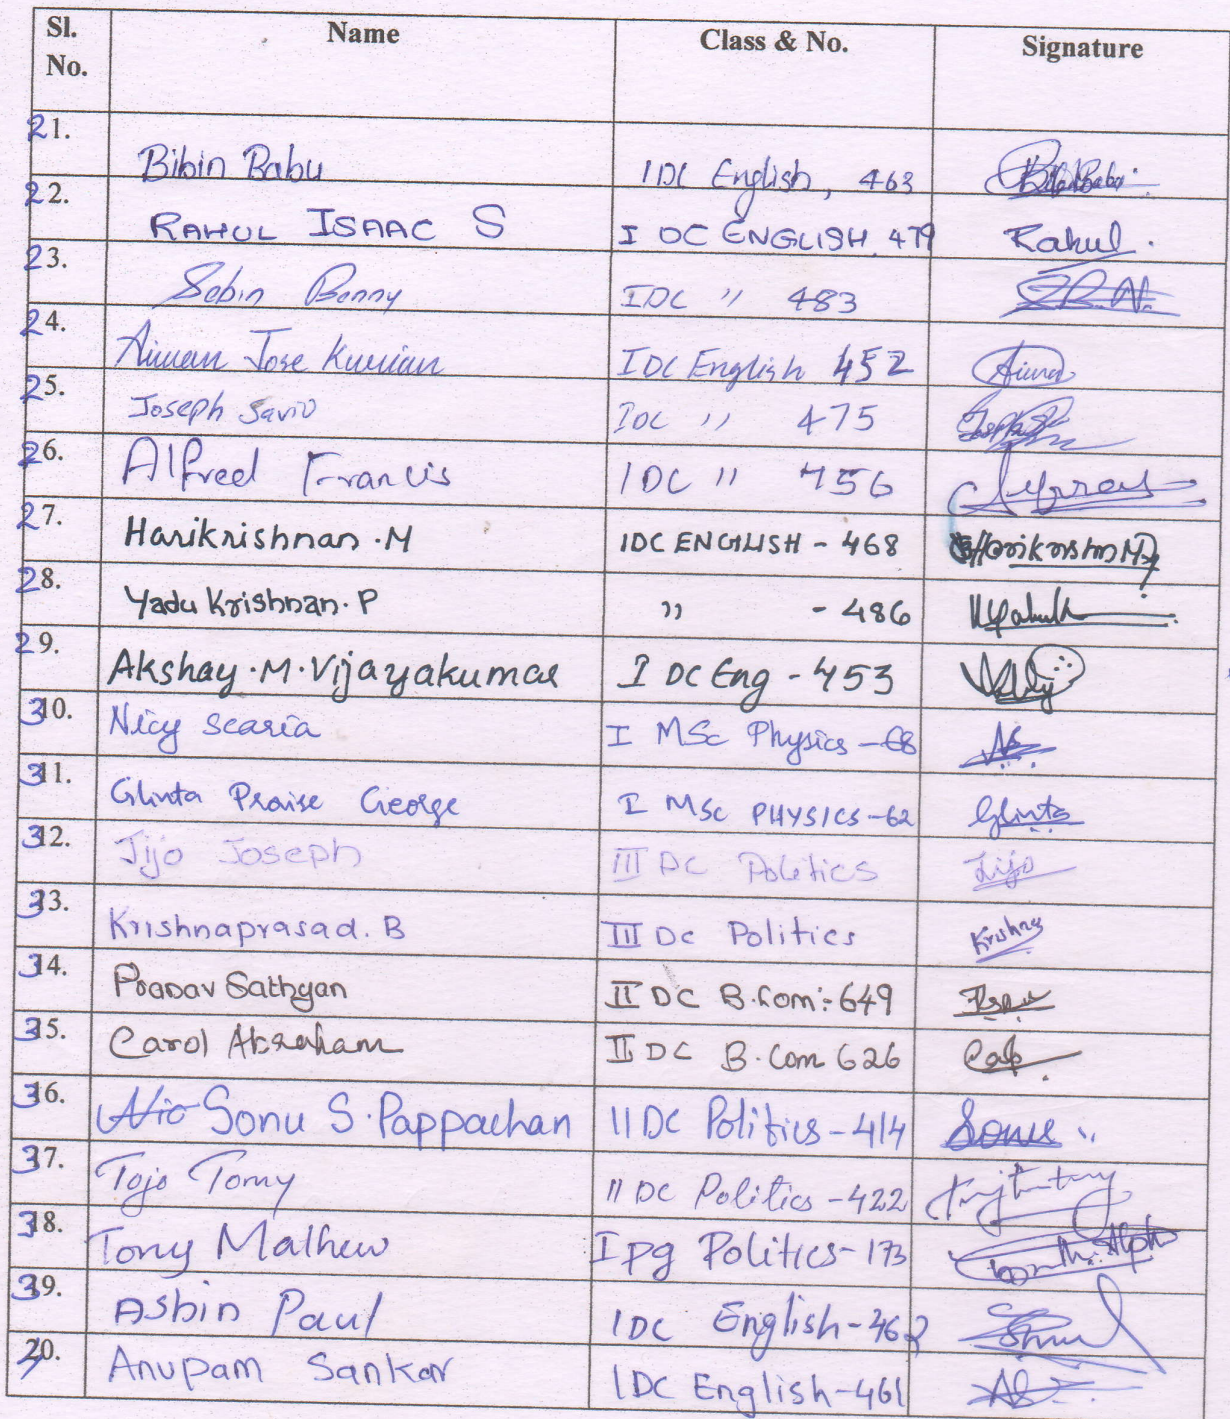 Sl. No. Name Class & No. Signature
21. Bibin Babu I DC English, 463
22. RAHUL ISAAC S I DC ENGLISH 479 Rahul.
23. Sebin Benny I DC " 483
24. Jose Kurian I DC English 452
25. Joseph Savio I DC " 475
26. Alfred Francis I DC " 456
27. Harikrishnan.M IDC ENGLISH - 468
28. Yadu Krishnan.P " - 486
29. Akshay.M.Vijayakumar I DC Eng - 453
30. Nicy scaria I MSc Physics - 68
31. Glinta Praise George I MSc PHYSICS - 62 Glinta
32. Jijo Joseph III DC Politics Jijo
33. Krishnaprasad.B III DC Politics Krishna
34. Pranav Sathyan II DC B.Com:- 649
35. Carol Abraham II DC B.Com 626
36. Sonu S.Pappachan II DC Politics - 414 Sonu
37. Tojo Tomy II DC Politics - 422
38. Tony Mathew I pg Politics - 173
39. Asbin Paul I DC English - 462
20. Anupam Sankar I DC English - 461